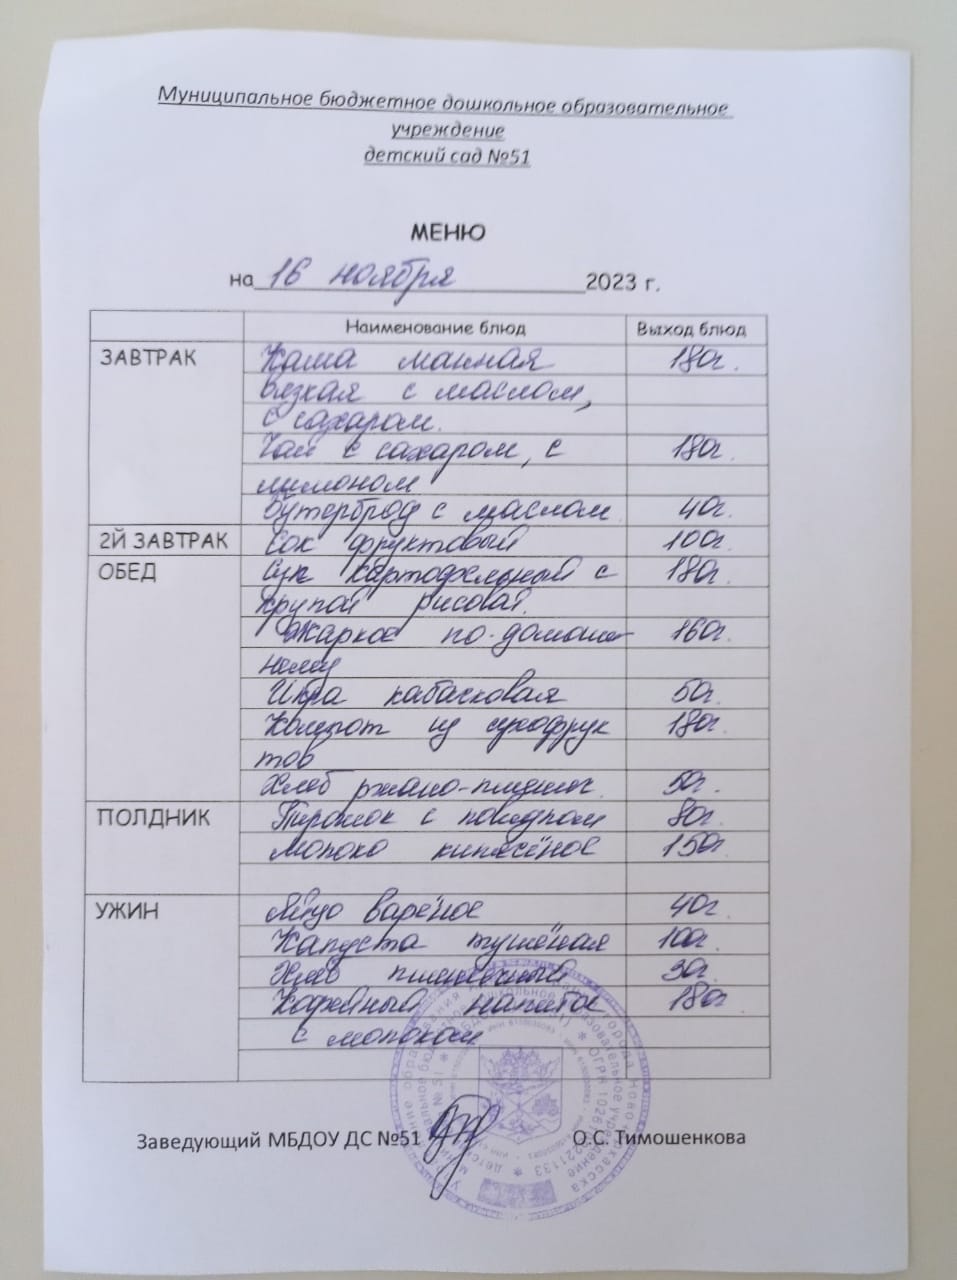 Муниципальное бюджетное дошкольное образовательное
учреждение
детский сад №51
МЕНЮ
на 16 ноября 2023 г.
Наименование блюд Выход блюд
ЗАВТРАК Каша манная 180г.
вязкая с маслом,
с сахаром.
Чай с сахаром, с 180г.
лимоном
Бутерброд с маслом 40г.
2Й ЗАВТРАК Сок фруктовый 100г.
ОБЕД Суп картофельный с 180г.
крупой рисовой.
Жаркое по-домаш- 160г.
нему
Икра кабачковая 50г.
Компот из сухофрук 180г.
тов
Хлеб ржано-пшенич. 50г.
ПОЛДНИК Пирожок с повидлом 80г.
Молоко кипячёное 150г
УЖИН Яйцо варёное 40г.
Капуста тушёная 100г.
Хлеб пшеничный 30г.
Кофейный напиток 180г
с молоком
Заведующий МБДОУ ДС №51 О.С. Тимошенкова